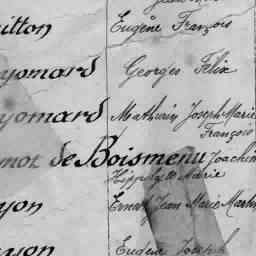 uitton Eugène François
yomard Georges Félix
yomard Mathurin Joseph Marie
François
mot de Boismenu Joachim
Hippolyte Marie
yon Ernest Jean Marie Martin
yson Eugène Joseph